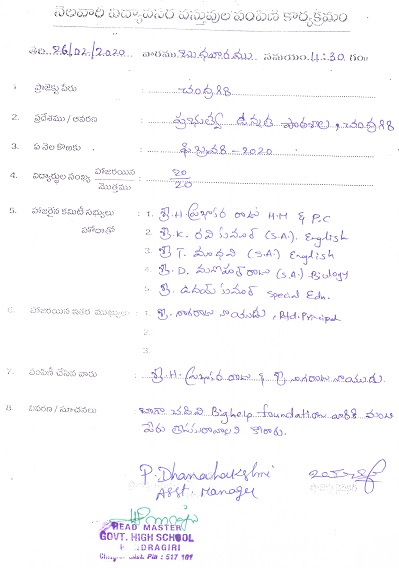 నెలవారి విద్యావసర వస్తువుల పంపిణి కార్యక్రమం
తేది. 26/02/2020 వారము బుధవారము సమయం 4:30 గం॥
1. ప్రాజెక్టు పేరు : చంద్రగిరి
2. ప్రదేశము / ఆవరణ : ప్రభుత్వ ఉన్నత పాఠశాల, చంద్రగిరి
3. ఏ నెల కొరకు : ఫిబ్రవరి - 2020
4. విద్యార్థుల సంఖ్య హాజరయిన / మొత్తము : 20 / 20
5. హాజరైన కమిటీ సభ్యులు : 1. శ్రీ. H. ప్రభాకర రాజు H.M & P.C
2. శ్రీ. K. రవి కుమార్ (S.A). English
3. శ్రీ T. మాధవి (S.A) English
4. శ్రీ. D. మనోహర్ రాజు (S.A) Biology
5. శ్రీ. ఉదయ్ కుమార్ Special Edn.
6. హాజరయిన ఇతర ముఖ్యులు : 1. శ్రీ. నాగరాజు నాయుడు, Rtd. Principal
2.
3.
7. పంపిణీ చేసిన వారు : శ్రీ. H. ప్రభాకర రాజు & శ్రీ నాగరాజు నాయుడు.
8. వివరణ / సూచనలు : బాగా చదివి Bighelp foundation వారికి మంచి
పేరు తీసుకురావాలని కోరారు.
P. Dhanalakshmi
Asst. Manager
HEAD MASTER
GOVT. HIGH SCHOOL
Pin : 517 101